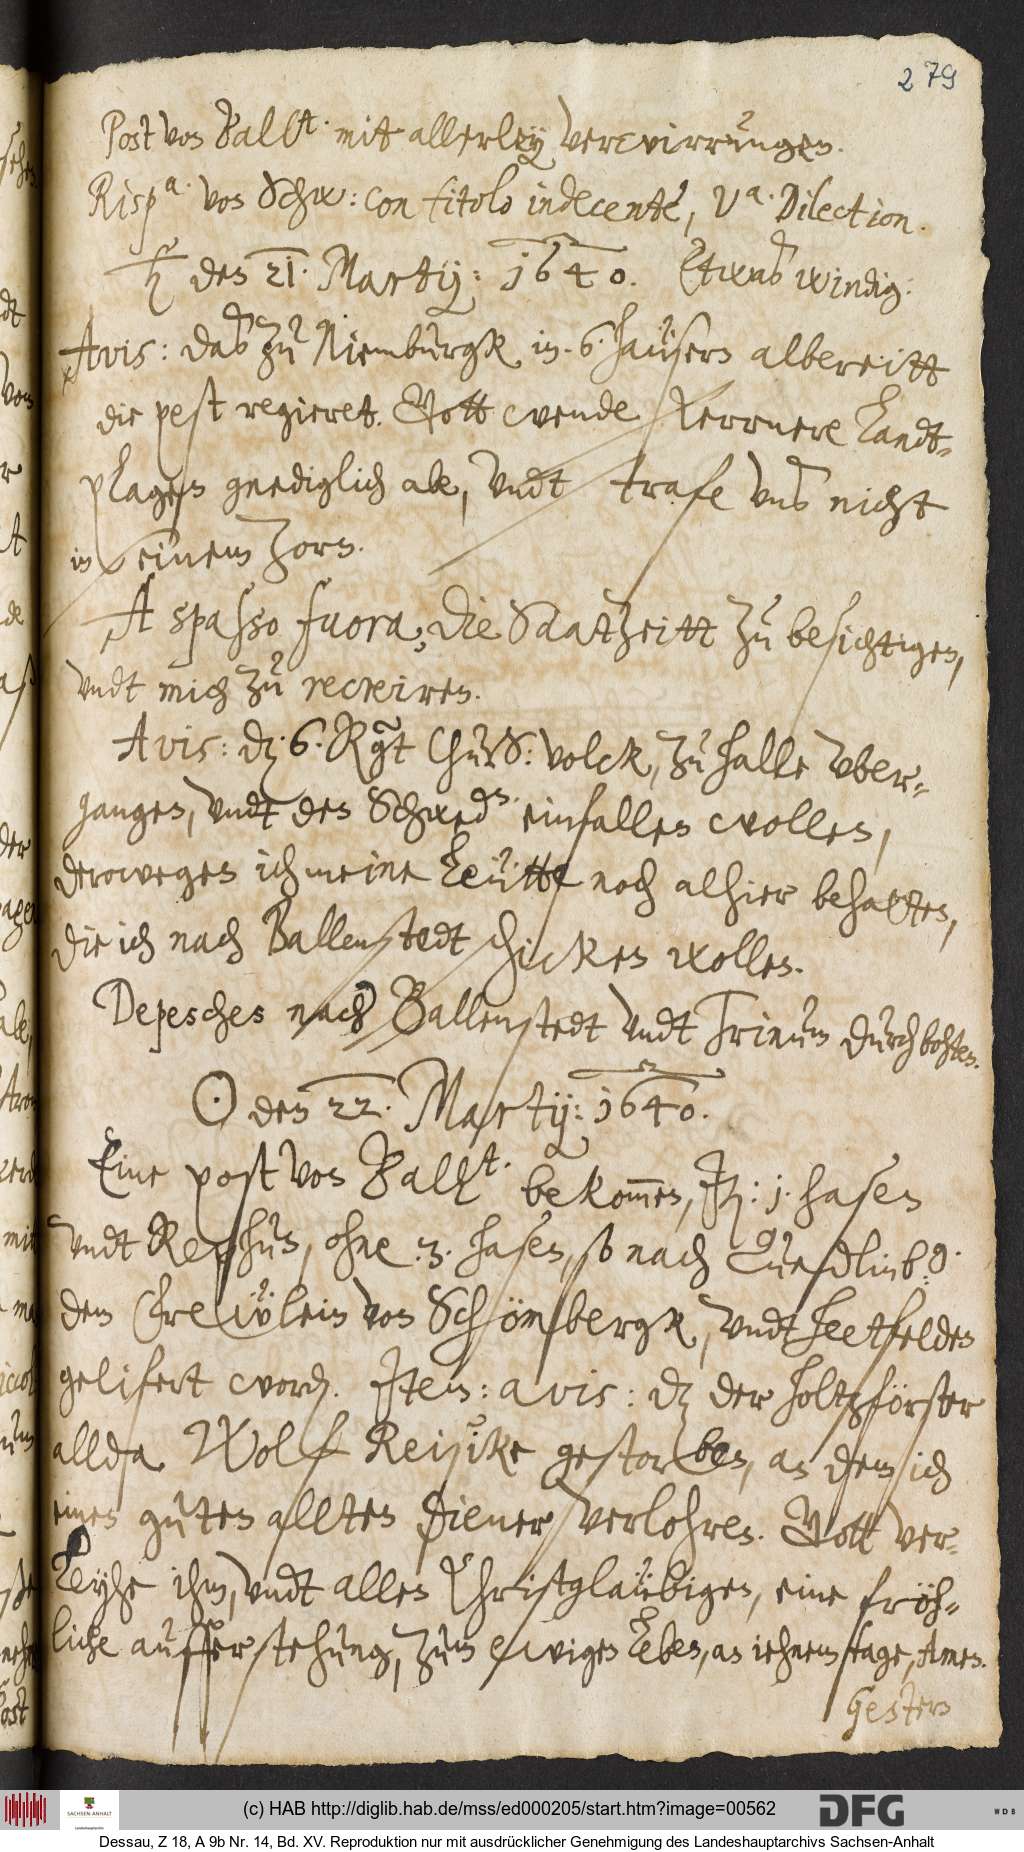 279
Post von Ballt. mit allerley verwirrungen.
Rispa. von Schw: con titolo indecente, Va. Dilection.
♄ den 21. Martij: 1640. Etwaß windig.
Avis: daß zu Niemburgk in 6 haüsern albereitt
die pest regieret. Gott wende fernere Landt-
plagen gnediglich abe, vndt strafe vnß nicht
in seinem zorn.
A spasso fuora, die Saatzeitt zu besichtigen,
vndt mich zu recreiren.
Avis: dz 6. Rgt Churs: volck, zu halle vber-
gangen, vndt den Schwedn. einfallen wollen,
derowegen ich meine Leütte noch alhier behalten,
die ich nach Ballenstedt schicken wollen.
Depeschen nach Ballenstedt vndt durch bohten.
☉ den 22. Martij: 1640.
Eine post von Ballt. bekommen, Jtz: 1. hasen
vndt Rephun, ohne 3. hasen, so nach Quedlinb.g
dem Frewlein von Schönbergk, vndt heetfelden
gelifert wordn. Jtem: avis: dz der holtzförster
allda Wolf gestorben, an dem ich
einen guten allten Diener verlohren. Gott ver-
leyhe ihm, vndt allen Christglaübigen, eine fröh-
liche aufferstehung, zum ewigen Leben, an iehnem tage, Amen.
Gestern
(c) HAB http://diglib.hab.de/mss/ed000205/start.htm?image=00562
SACHSEN-ANHALT
DFG
WDB
Dessau, Z 18, A 9b Nr. 14, Bd. XV. Reproduktion nur mit ausdrücklicher Genehmigung des Landeshauptarchivs Sachsen-Anhalt